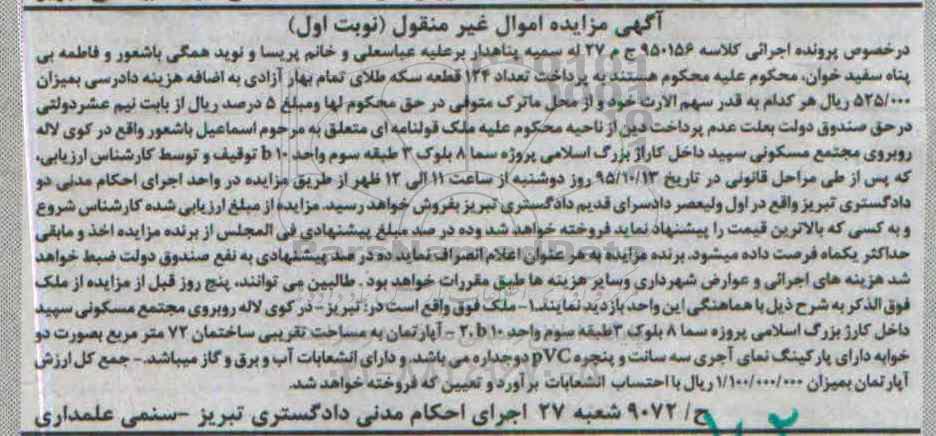 آگهی مزایده اموال غیر منقول (نوبت اول)
درخصوص پرونده اجرائی کلاسه ۹۵۰۱۵۶ ج م ۲۷ له سمیه پناهدار برعلیه عباسعلی و خانم پریسا و نوید همگی باشعور و فاطمه بی
پناه سفید خوان، محکوم علیه محکوم هستند به پرداخت تعداد ۱۲۴ قطعه سکه طلای تمام بهار آزادی به اضافه هزینه دادرسی بمیزان
۵۲۵/۰۰۰ ریال هر کدام به قدر سهم الارث خود و از محل ماترک متوفی در حق محکوم لها ومبلغ ۵ درصد ریال از بابت نیم عشردولتی
در حق صندوق دولت بعلت عدم پرداخت دین از ناحیه محکوم علیه ملک قولنامه ای متعلق به مرحوم اسماعیل باشعور واقع در کوی لاله
روبروی مجتمع مسکونی سپید داخل کاراژ بزرگ اسلامی پروژه سما ۸ بلوک ۳ طبقه سوم واحد b ۱۰ توقیف و توسط کارشناس ارزیابی،
که پس از طی مراحل قانونی در تاریخ ۹۵/۱۰/۱۳ روز دوشنبه از ساعت ۱۱ الی ۱۲ ظهر از طریق مزایده در واحد اجرای احکام مدنی دو
دادگستری تبریز واقع در اول ولیعصر دادسرای قدیم دادگستری تبریز بفروش خواهد رسید. مزایده از مبلغ ارزیابی شده کارشناس شروع
و به کسی که بالاترین قیمت را پیشنهاد نماید فروخته خواهد شد وده در صد مبلغ پیشنهادی فی المجلس از برنده مزایده اخذ و مابقی
حداکثر یکماه فرصت داده میشود. برنده مزایده به هر عنوان اعلام انصراف نماید ده در صد پیشنهادی به نفع صندوق دولت ضبط خواهد
شد هزینه های اجرائی و عوارض شهرداری وسایر هزینه ها طبق مقررات خواهد بود . طالبین می توانند، پنج روز قبل از مزایده از ملک
فوق الذکر به شرح ذیل با هماهنگی این واحد بازدید نمایند.۱- ملک فوق واقع است در: تبریز - در کوی لاله روبروی مجتمع مسکونی سپید
داخل کارژ بزرگ اسلامی پروزه سما ۸ بلوک ۳طبقه سوم واحد b ۱۰ .۲ - آپارتمان به مساحت تقریبی ساختمان ۷۲ متر مربع بصورت دو
خوابه دارای پارکینگ نمای آجری سه سانت و پنجره pVC دوجداره می باشد. و دارای انشعابات آب و برق و گاز میباشد. - جمع کل ارزش
آپارتمان بمیزان ۱/۱۰۰/۰۰۰/۰۰۰ ریال با احتساب انشعابات برآورد و تعیین که فروخته خواهد شد.
ح/ ۹۰۷۲ شعبه ۲۷ اجرای احکام مدنی دادگستری تبریز -سنمی علمداری
ParsNamadData